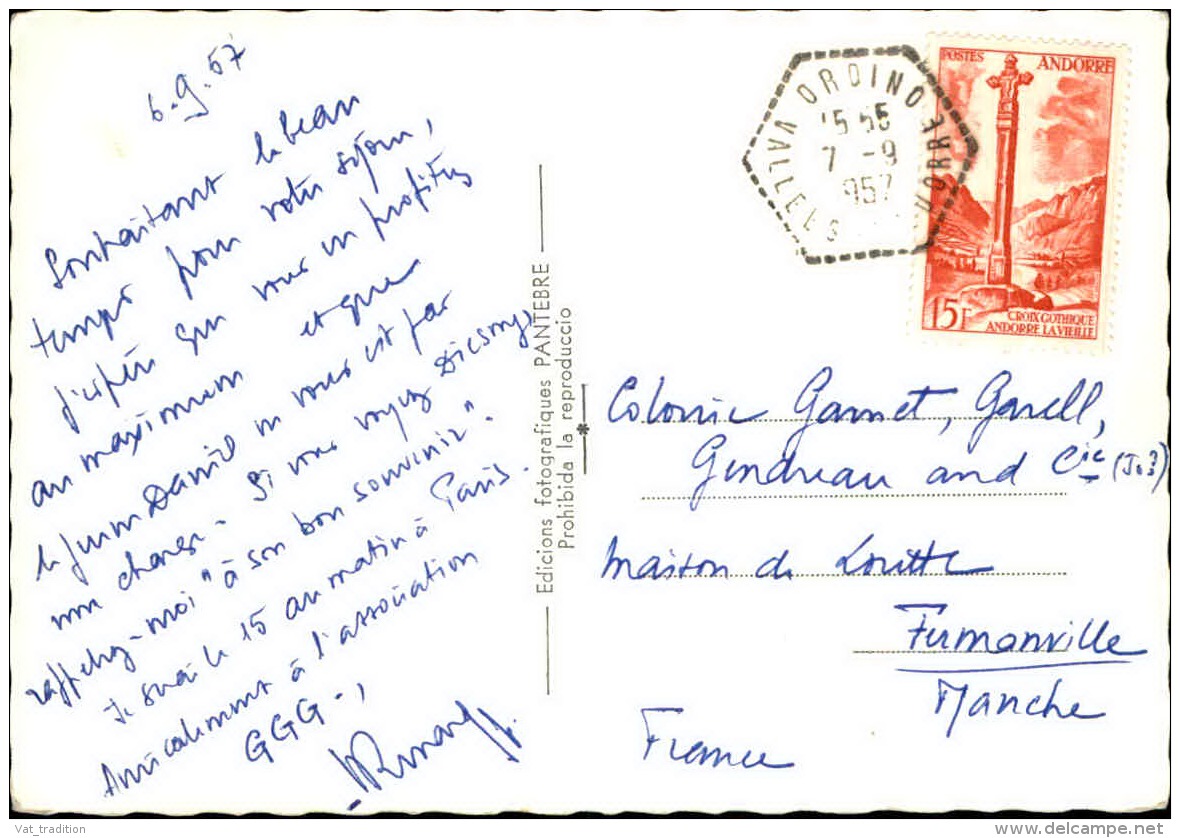 6.9.57
Souhaitant le beau
temps pour votre séjour,
j'espère que vous en profitez
au maximum et que
le jeune Daniel ne vous est pas
non change - Si vous voyez
rappelez-moi "à son bon souvenir".
Je serai le 15 au matin à Paris.
Amicalement à l'association
GGG -,
Edicions fotografiques PANTEBRE
Prohibida la reproduccio
POSTES ANDORRE
15F
CROIX GOTHIQUE
ANDORRE LA VIEILLE
ORDINO
VALLEES
15 55
7 -9
957
Colonie Garnet, Garell,
Gendreau and Cie (J.3)
Maison de Louitte
Fermanville
Manche
France
Vat_tradition
delcampe.net